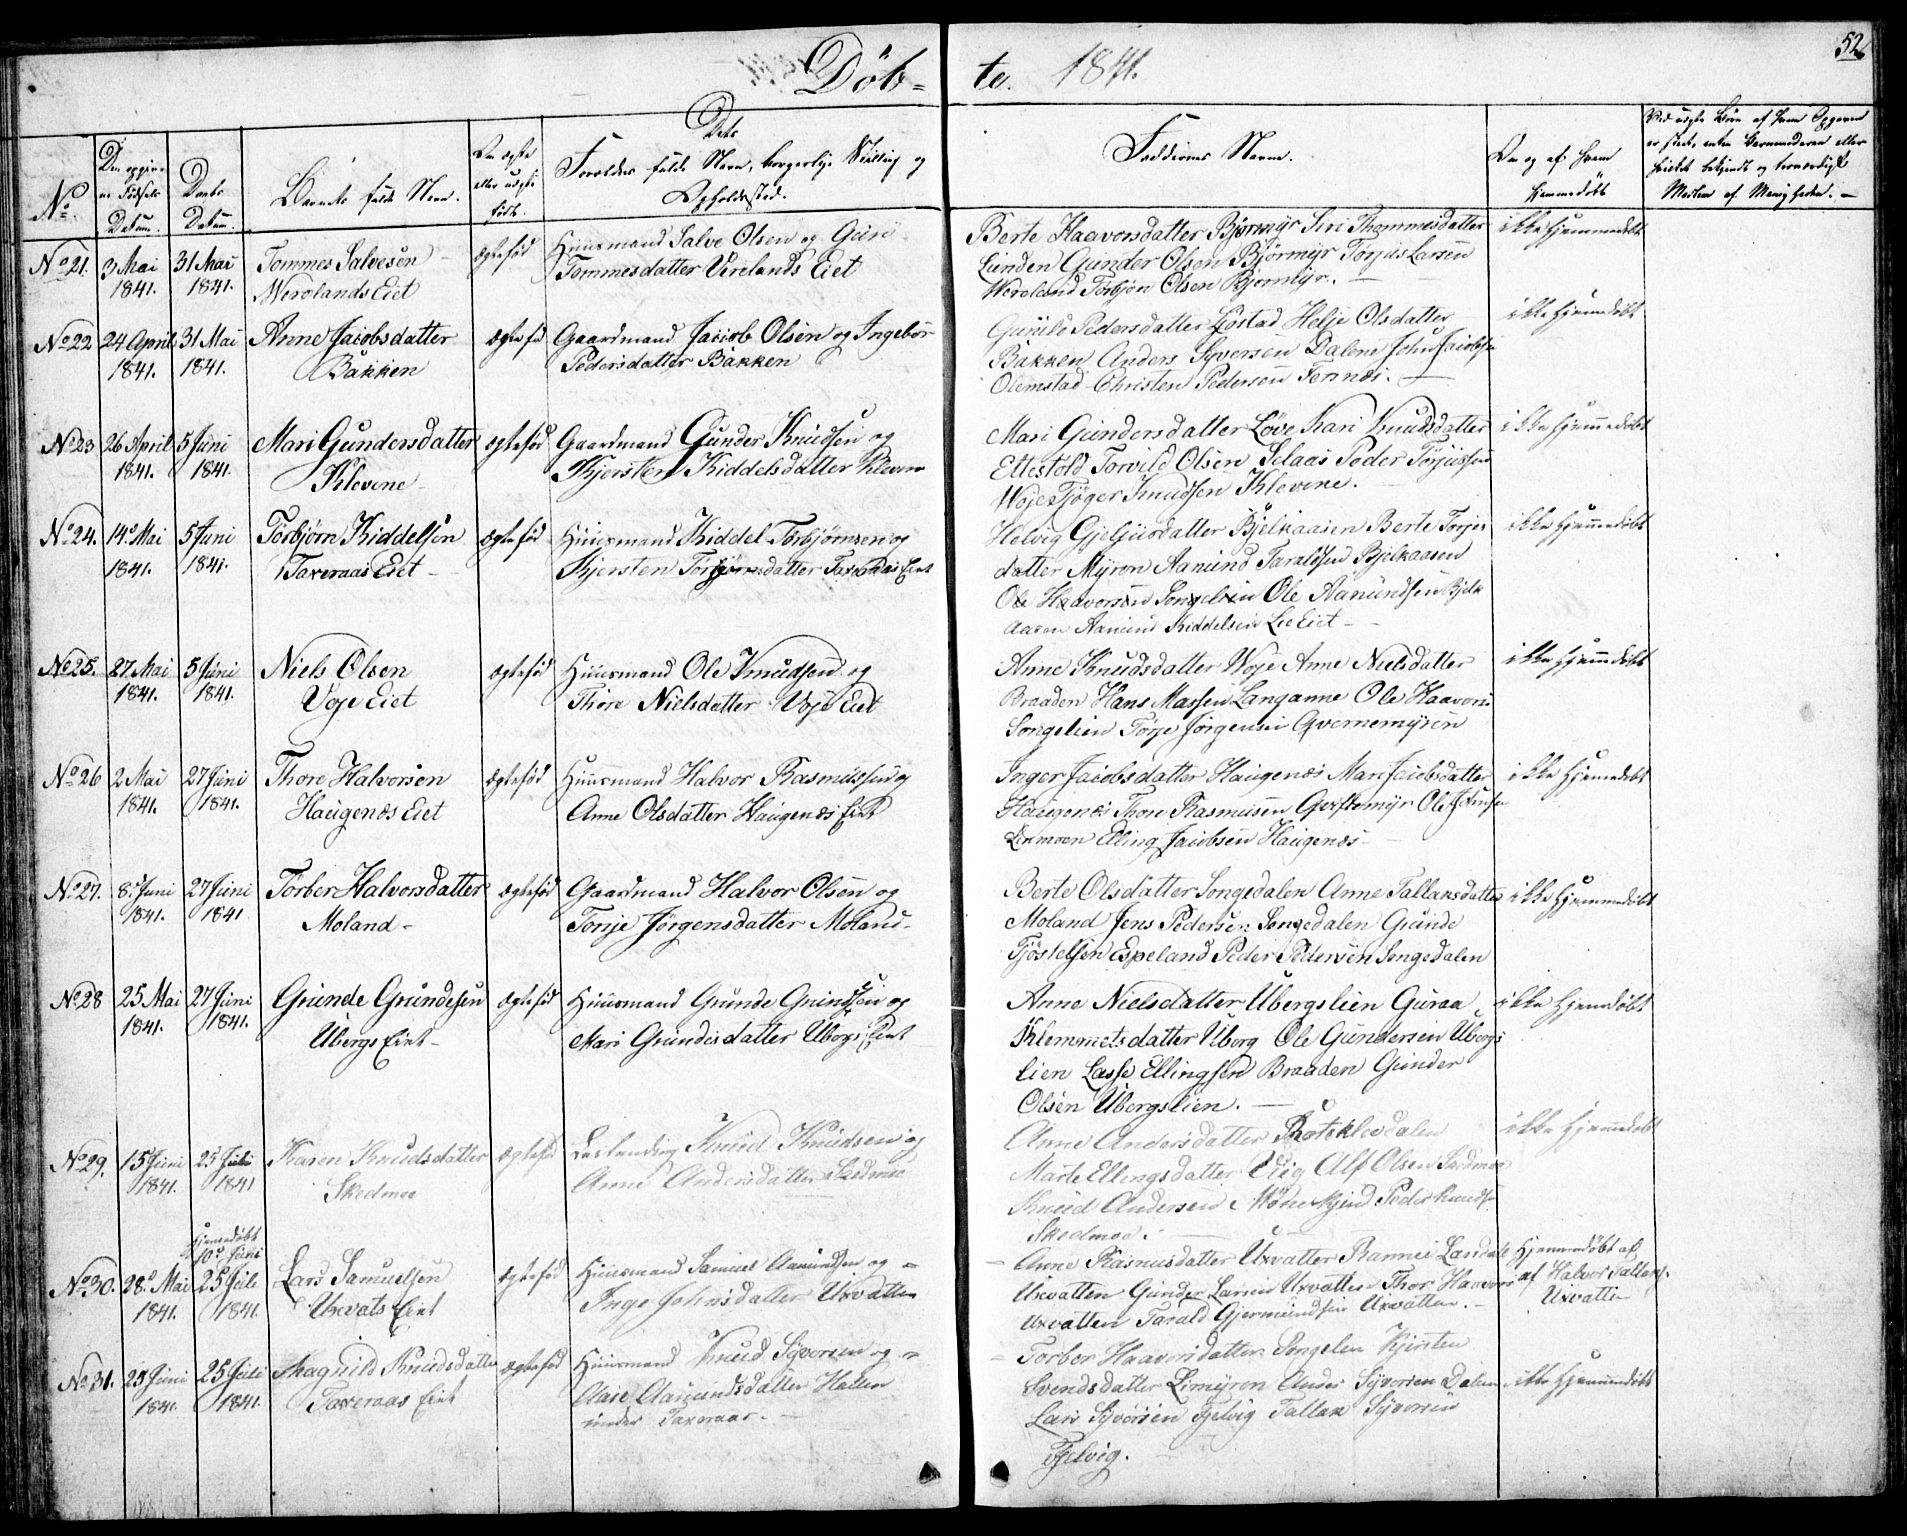 52
Døb=
te. 1841.
No.
Den opgivne Fødsels Datum.
Daabs Datum.
Barnets fulde Navn.
Om ægte eller uægte født.
Dets
Forældres fulde Navn, borgerlige Stilling og
Opholdssted.
Faddernes Navne.
Om og af hvem
hjemmedøbt
No 21.
3 Mai
1841.
31 Mai
1841.
Tommes Salvesen
Werolands Eiet
ægtefød
Huusmand Salve Olsen og Guri
Tommesdatter Verelands Eiet
Berte Haavorsdatter Bjørmyr Siri Thommesdatter
Lunden Gunder Olsen Bjørmyr Torjus Larsen
Weroland Torbjøn Olsen Bjormyr.
ikke hjemmedøbt
No 22
24 April
1841.
31 Mai
1841.
Anne Jacobsdatter
Bakken
ægtefød
Gaardmand Jacob Olsen og Ingebor
Pedersdatter Bakken
Gunild Pedersdatter Løstad Helje Olsdatter
Bakken Anders Syversen Dalene John Jacobsen
Olimstad Christen Pedersen Fennæs.
ikke hjemmedøbt
No 23
26 April
1841.
5 Juni
1841.
Mari Gundersdatter
Klevene
ægtefød
Gaardmand Gunder Knudsen og
Kjersten Kiddelsdatter Klevene
Mari Gundersdatter Løve Kari Knudsdatter
Ettestøld Torvild Olsen Selaas Peder Torjussen
Woje Tjøger Knudsen Klevene.
ikke hjemmedøbt
No 24.
14 Mai
1841.
5 Juni
1841.
Torbjørn Kiddelsen
Taxeraas Eiet
ægtefød
Huusmand Kiddel Torbjørnsen og
Kjersten Torjersdatter Taxeraas Eiet
Helvig Gjeljusdatter Bjelkaasen Berte Torjes
datter Myron Aamund Taraldsen Bjelkaasen
Ole Haavorsen Songelien Ole Aamundsen Bjelk
aasen Aamund Kiddelsen Lie Eiet
ikke hjemmedøbt
No 25.
27 Mai
1841.
5 Juni
1841.
Niels Olsen
Voje Eiet
ægtefød
Huusmand Ole Knudsen og
Thore Nielsdatter Voje Eiet
Anne Knudsdatter Woje Anne Nielsdatter
Braaden Hans Massen Langanne Ole Haavors
Songelien Torje Jørgensen Qvernemyren
ikke hjemmedøbt
No 26
2 Mai
1841.
27 Juni
1841.
Thore Halvorsen
Haugenæs Eiet
ægtefød
Huusmand Halvor Rasmussen og
Anne Olsdatter Haugenæs Eiet
Inger Jacobsdatter Haugenæs Mari Jacobsdatter
Haugenæs Thore Rasmusen Qviftemyr Ole Johnsen
Linmoen Elling Jacobsen Haugenæs
ikke hjemmedøbt
No 27.
8 Juni
1841.
27 Juni
1841
Torber Halvorsdatter
Moland
ægtefød
Gaardmand Halvor Olsen og
Tonje Jørgensdatter Moland
Berte Olsdatter Songedalen Anne Tallaksdatter
Moland Jens Pedersen Songedalen Gunde
Tjøstelsen Espeland Peder Pedersen Songedalen
ikke hjemmedøbt
No 28
25 Mai
1841.
27 Juni
1841.
Gunde Gundesen
Ubergs Eiet
ægtefød
Huusmand Gunde Gundsen og
Mari Gundesdatter Ubergs Eiet
Anne Nielsdatter Ubergslien Guraa
Klemmetsdatter Uberg Ole Gundersen Ubergs
lien Lasse Ellingsen Braaden Gunder
Olsen Ubergslien.
ikke hjemmedøbt
No 29.
15 Juni
1841.
25 Juli
1841
Karen Knudsdatter
Skedmoe
ægtefød
Leilending Knud Knudsen og
Anne Andersdatter Skedmoe
Anne Andersdatter Rotekleivdalen
Marte Ellingsdatter Ulvig Alf Olsen Skedmoe
Knud Andersen Mønekjend Peder Knuds
Skedmoe.
ikke hjemmedøbt
No 30.
28 Mai
1841.
hjemmedøbt
10 Juni
25 Juli
1841.
Lars Samuelsen
Uxvats Eiet
ægtefød
Huusmand Samuel Aamundsen og
Inge Johnsdatter Uxvatten
Anne Rasmusdatter Uxvatten Rannei Larsdatter
Uxvatten Gunder Larsen Uxvatten Thor Haavors
Uxvatten Tarald Gjermundsen Uxvatten.
Hjemmedøbt af
af Halvor Tallaks.
Uxvatten
No 31.
29 Juni
1841.
25 Juli
1841.
Magnild Knudsdatter
Taxeraas Eiet
ægtefød
Huusmand Knud Syversen og
Aase Aamundsdatter Hellen
under Taxeraas.
Torber Haavorsdatter Songelen Kjersten
Svendsdatter Limyren Anders Syversen Dalene
Lars Syversen Tjelvig Tallak Syversen
Tjelvig.
ikke hjemmedøbt